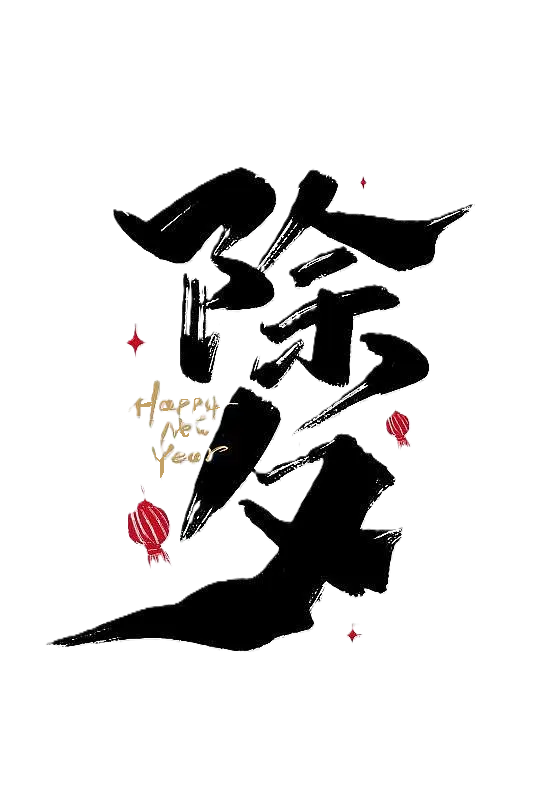 除夕
Happy
New
Year